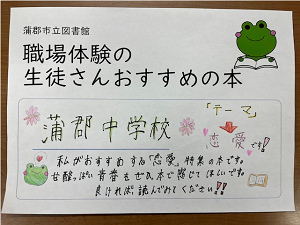 蒲郡市立図書館
職場体験の
生徒さんおすすめの本
蒲郡中学校
「テーマ」
恋愛です!
私がおすすめする「恋愛」特集の本です。
甘酸っぱい青春をぜひ本で感じてほしいです。
良ければ、読んでみてください!!